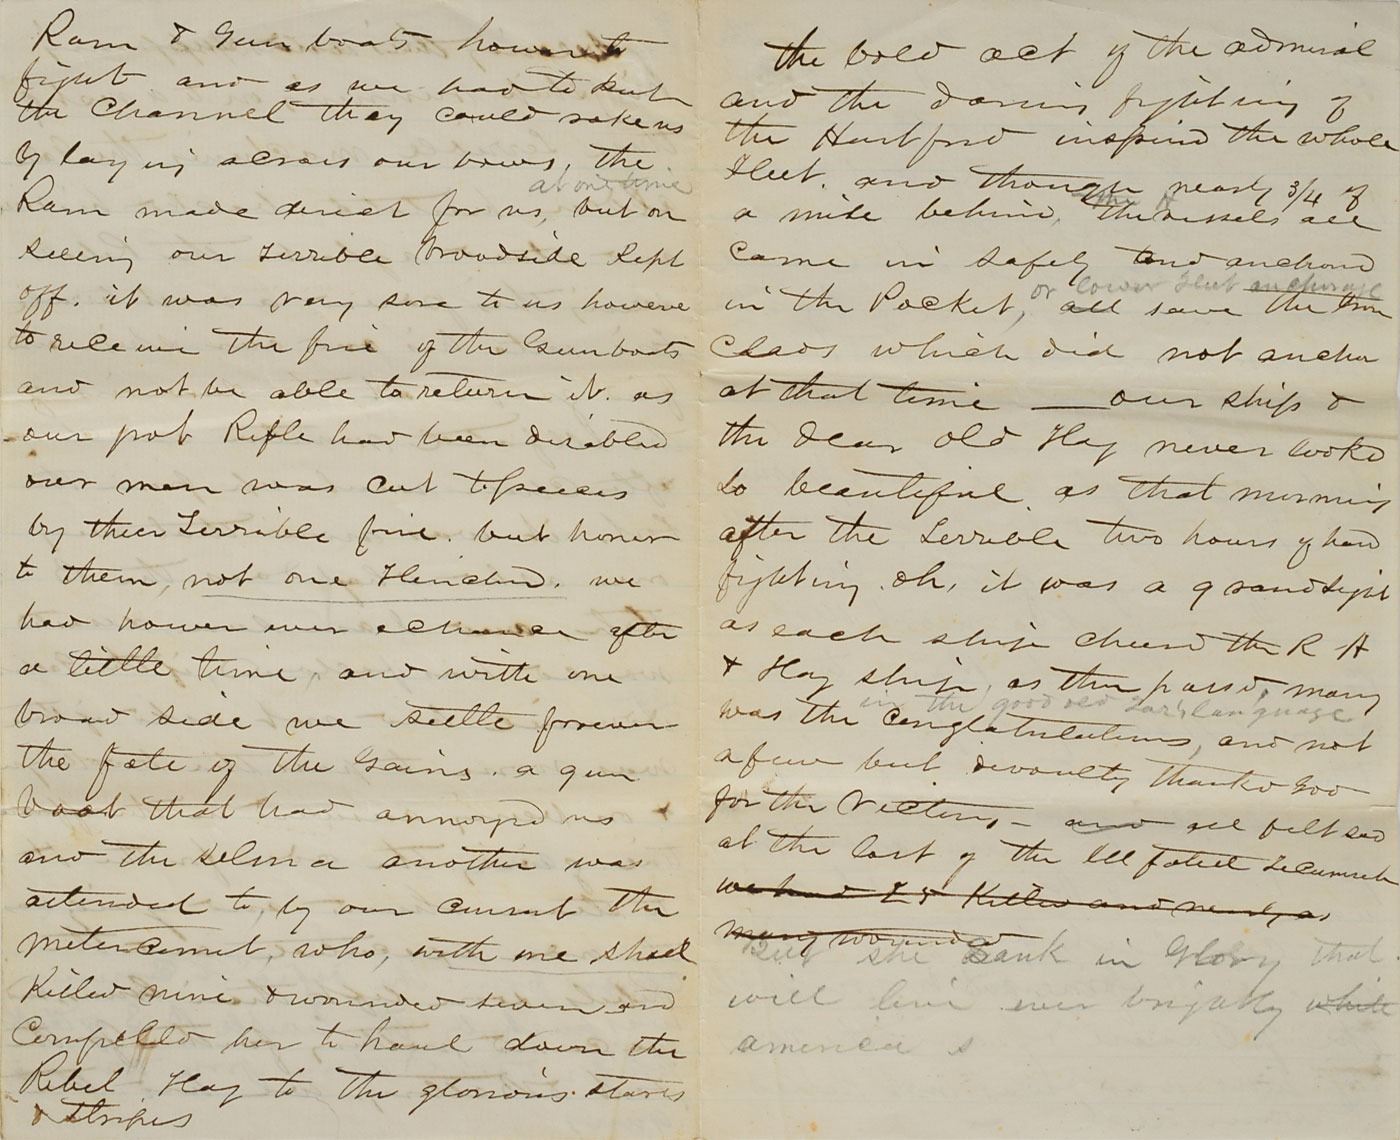 Ram & Gun boats however to
fight and as we had to Keep
the Channel they could rake us
by laying across our bows, the
at one time
Ram made direct for us, but on
seeing our Terrible Broadside Kept
off. it was very sore to us however
to receive the fire of the Gunboats
and not be able to return it. as
our Rifle had been disabled
our men was cut to pieces
by their Terrible fire. but honor
to them, not one Flinched. we
had however a chance after
a little time, and with one
broad side we settle forever
the fate of the Gains. a gun
boat that had annoyed us
and the Selma another was
attended to, by our consort the
Metercomet, who, with one shell
Killed nine & wounded seven and
Compelld her to haul down the
Rebel Flag to the glorious stars
& Stripes
the bold act of the admiral
and the daring fighting of
the Hartford inspired the whole
Fleet. and though nearly 3/4 of
a mile behind, the vessels all
came in safely and anchord
or lower Fleet anchorage
in the Pocket, all save the Iron
Clads which did not anchor
at that time — our ship &
the dear old Flag never lookd
so beautiful as that morning
after the Terrible two hours of hard
fighting. oh, it was a grand sight
as each ship cheerd the R A
& Flag ship, as they passd, many
in the good old tar's language
was the Congratulations, and not
a few but devoutly thankd God
for the Victory, - and all felt sad
at the lost of the Ill fated Tecumseh
we had 25 Killed and nearly as
many wounded
But she sank in Glory that
will live ever brightly while
america s